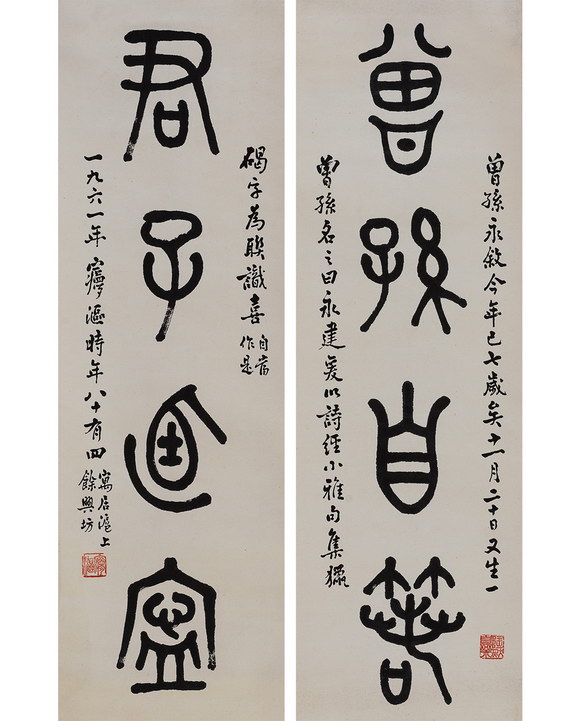 曾孫自若
曾孫永敘今年已七歲矣十一月二十日又生一
曾孫名之曰永建爰以詩經小雅句集獵
君子逌寍
碣字為聯識喜
自當
作是
一九六一年㝱漚時年八十有四
寓居滬上
餘興坊